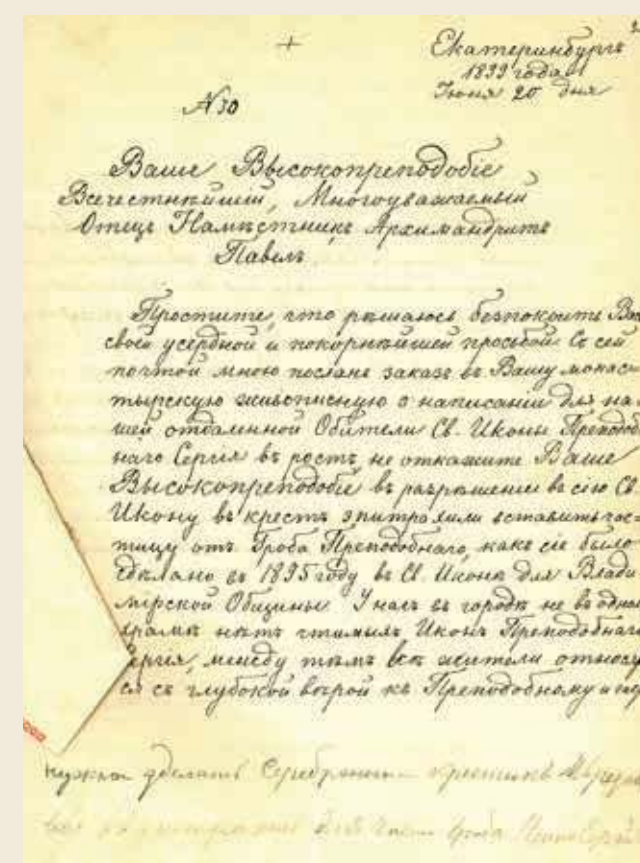 +
Екатеринбургъ
1899 года
Іюня 20 дня
№ 30
Ваше Высокопреподобіе
Всечестнѣйшій, Многоуважаемый
Отецъ Намѣстникъ Архимандритъ
Павелъ
Простите, что рѣшаюсь безпокоить Ва
своей усердной и покорнѣйшей просьбой. Съ сей
почтой мною посланъ заказъ въ Вашу монас
тырскую живописную о написаніи для на
шей отдаленной Обители Св. Иконы Преподоб
наго Сергія въ ростъ, не откажите Ваше
Высокопреподобіе въ разрѣшеніи въ сію Св.
Икону въ крестъ эпитрахили вставить час
тицу отъ Гроба Преподобнаго, какъ сіе было
сдѣлано въ 1895 году въ Св. Иконѣ для Влади
мірской Общины. У насъ въ городѣ не въ одном
храмѣ нѣтъ чтимыхъ Иконъ Преподобнаго
Сергія, между тѣмъ всѣ жители относя
ся съ глубокой вѣрой къ Преподобному и
нужно сдѣлать Серебряный крестикъ